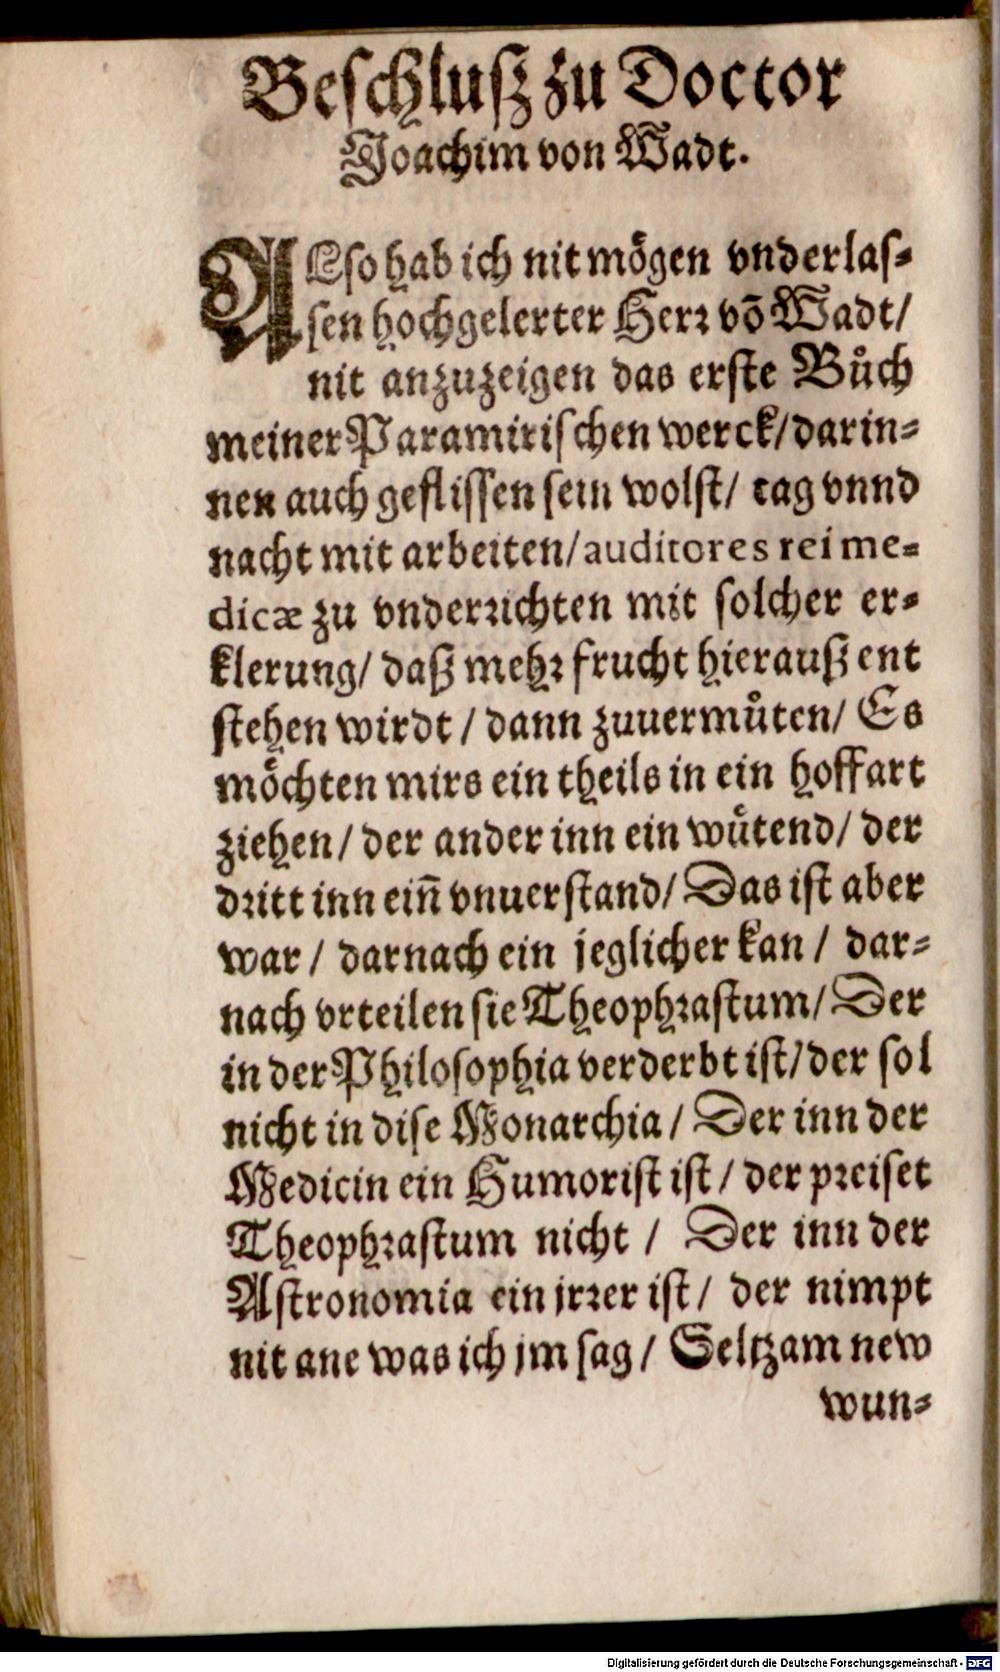 Beschlusz zu Doctor
Joachim von Wadt.
ALso hab ich nit mögen vnderlas-
sen hochgelerter Herr võ Wadt/
nit anzuzeigen das erste Bůch
meiner Paramirischen werck/darin-
nen auch geflissen sein wolst/ tag vnnd
nacht mit arbeiten/auditores rei me-
dicæ zu vnderrichten mit solcher er-
klerung/ daß mehr frucht hierauß ent
stehen wirdt / dann zuuermůten/ Es
möchten mirs ein theils in ein hoffart
ziehen/ der ander inn ein wůtend/ der
dritt inn eiñ vnuerstand/ Das ist aber
war / darnach ein jeglicher kan / dar-
nach vrteilen sie Theophrastum/ Der
in der Philosophia verderbt ist/der sol
nicht in dise Monarchia / Der inn der
Medicin ein Humorist ist / der preiset
Theophrastum nicht / Der inn der
Astronomia ein jrrer ist/ der nimpt
nit ane was ich jm sag/ Seltzam new
wun-
Digitalisierung gefördert durch die Deutsche Forschungsgemeinschaft - DFG